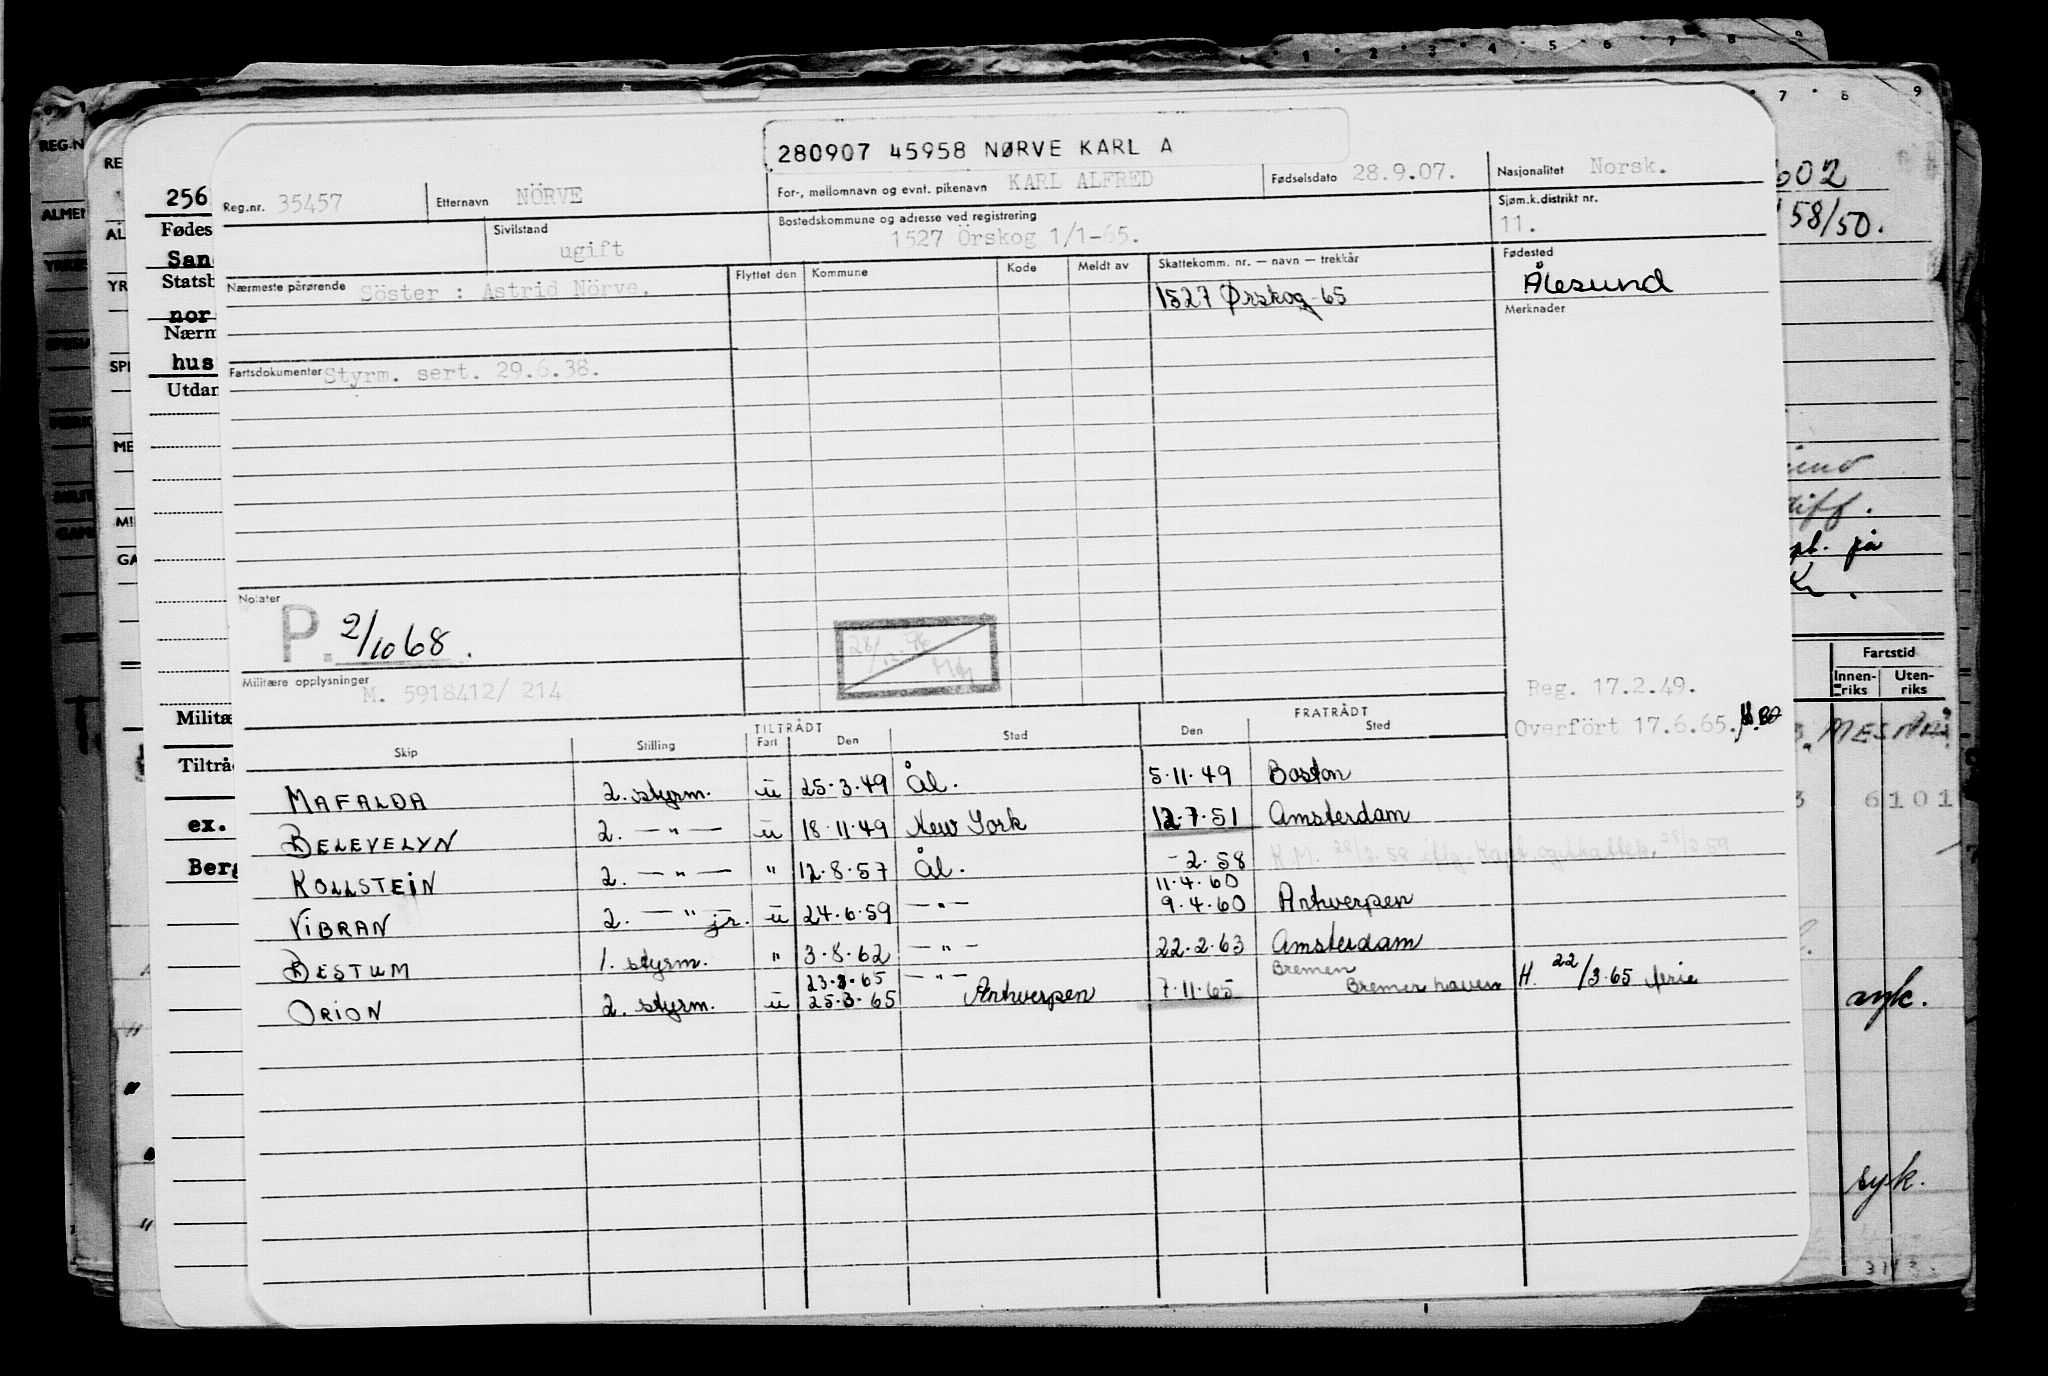 280907 45958 NØRVE KARL A
Reg.nr. 35457 Etternavn NÖRVE For-, mellomnavn og evnt. pikenavn KARL ALFRED Fødselsdato 28.9.07. Nasjonalitet Norsk.
Sivilstand ugift Bostedskommune og adresse ved registrering 1527 Örskog 1/1-65. Sjøm.k.distrikt nr. 11.
Nærmeste pårørende Söster : Astrid Nörve. Flyttet den Kommune Kode Meldt av Skattekomm. nr. — navn — trekkår Fødested Ålesund
1527 Ørskog-65
Merknader
Fartsdokumenter Styrm. sert. 29.6.38.
Notater
P. 2/10 68.
Militære opplysninger M. 5918412/ 214
Reg. 17.2.49.
Overfört 17.6.65.
TILTRÅDT FRATRÅDT
Skip Stilling Fart Den Sted Den Sted
MAFALDA 2. styrm. u 25.3.49 Ål. 5.11.49 Boston
BELEVELYN 2. — " — u 18.11.49 New York 12.7.51 Amsterdam
KOLLSTEIN 2. — " — " 12.8.57 Ål. -2.58 K.M.
11.4.60
VIBRAN 2. — " jr. u 24.6.59 — " — 9.4.60 Antwerpen
BESTUM 1. styrm. " 3.8.62 — " — 22.2.63 Amsterdam
23.3.65 — " — Bremen
ORION 2. styrm. u 25.3.65 Antwerpen 7.11.65 Bremerhaven H. 22/3.65 ferie
256
Fødes
San
Statsb
nor
Nærm
hus
Utdan
Militæ
Tiltråd
ex.
Berg
REG.N
ALMEN
RE
AL
YR
SPE
ME
MI
GA
602
58/50.
på
Fartstid
Innen-riks Uten-riks
6101
syk.
syk.